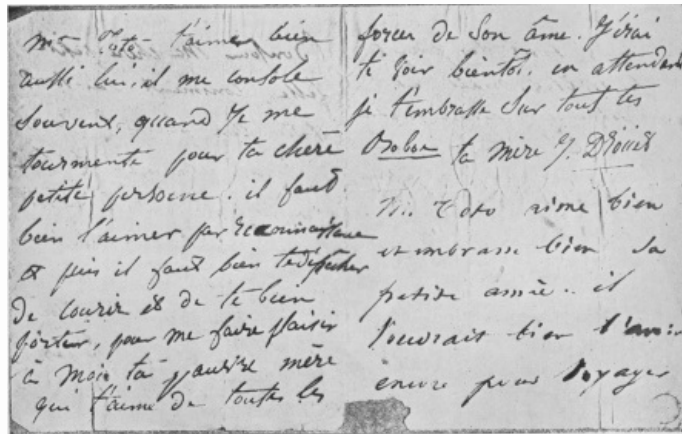 Mr Toto t'aimer bien
aussi lui, il me console
souvent, quand je me
tourmente pour ta chère
petite personne. il faut
bien l'aimer par reconnaissance
et puis il faut bien te dépêcher
de courir et de te bien
porter, pour me faire plaisir
à moi ta pauvre mère
qui t'aime de toutes les
forces de son âme. J'irai
te voir bientôt, en attendant
je t'embrasse sur tout tes
ta mère J. Drouet
Mr Toto aime bien
et embrasse bien sa
petite amie. il
voudrait bien l'avoir
encore pour voyager